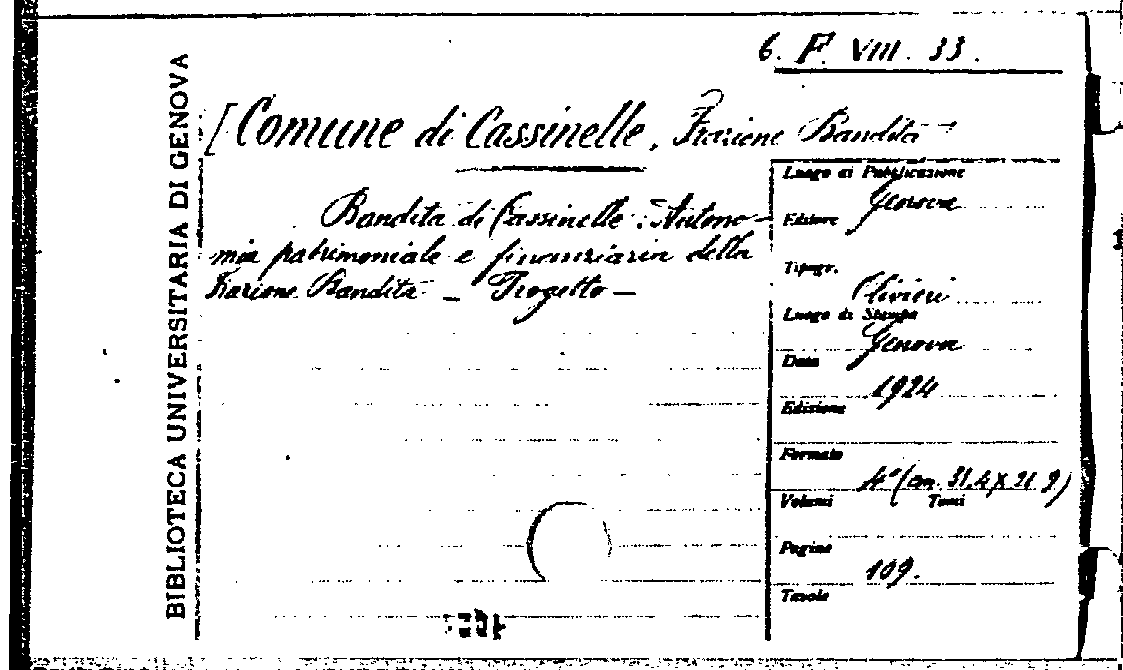 6. F. VIII. 33.
BIBLIOTECA UNIVERSITARIA DI GENOVA
[Comune di Cassinelle, Frazione Bandita
Bandita di Cassinelle: Autono-
mia patrimoniale e finanziaria della
frazione Bandita - Progetto -
Luogo di Pubblicazione
Genova
Editore
Tipogr.
Olivieri
Luogo di Stampa
Genova
Data
1924
Edizione
Formato
4° (cm. 31,4 X 21 9)
Volumi Tomi
Pagine
109.
Tavole